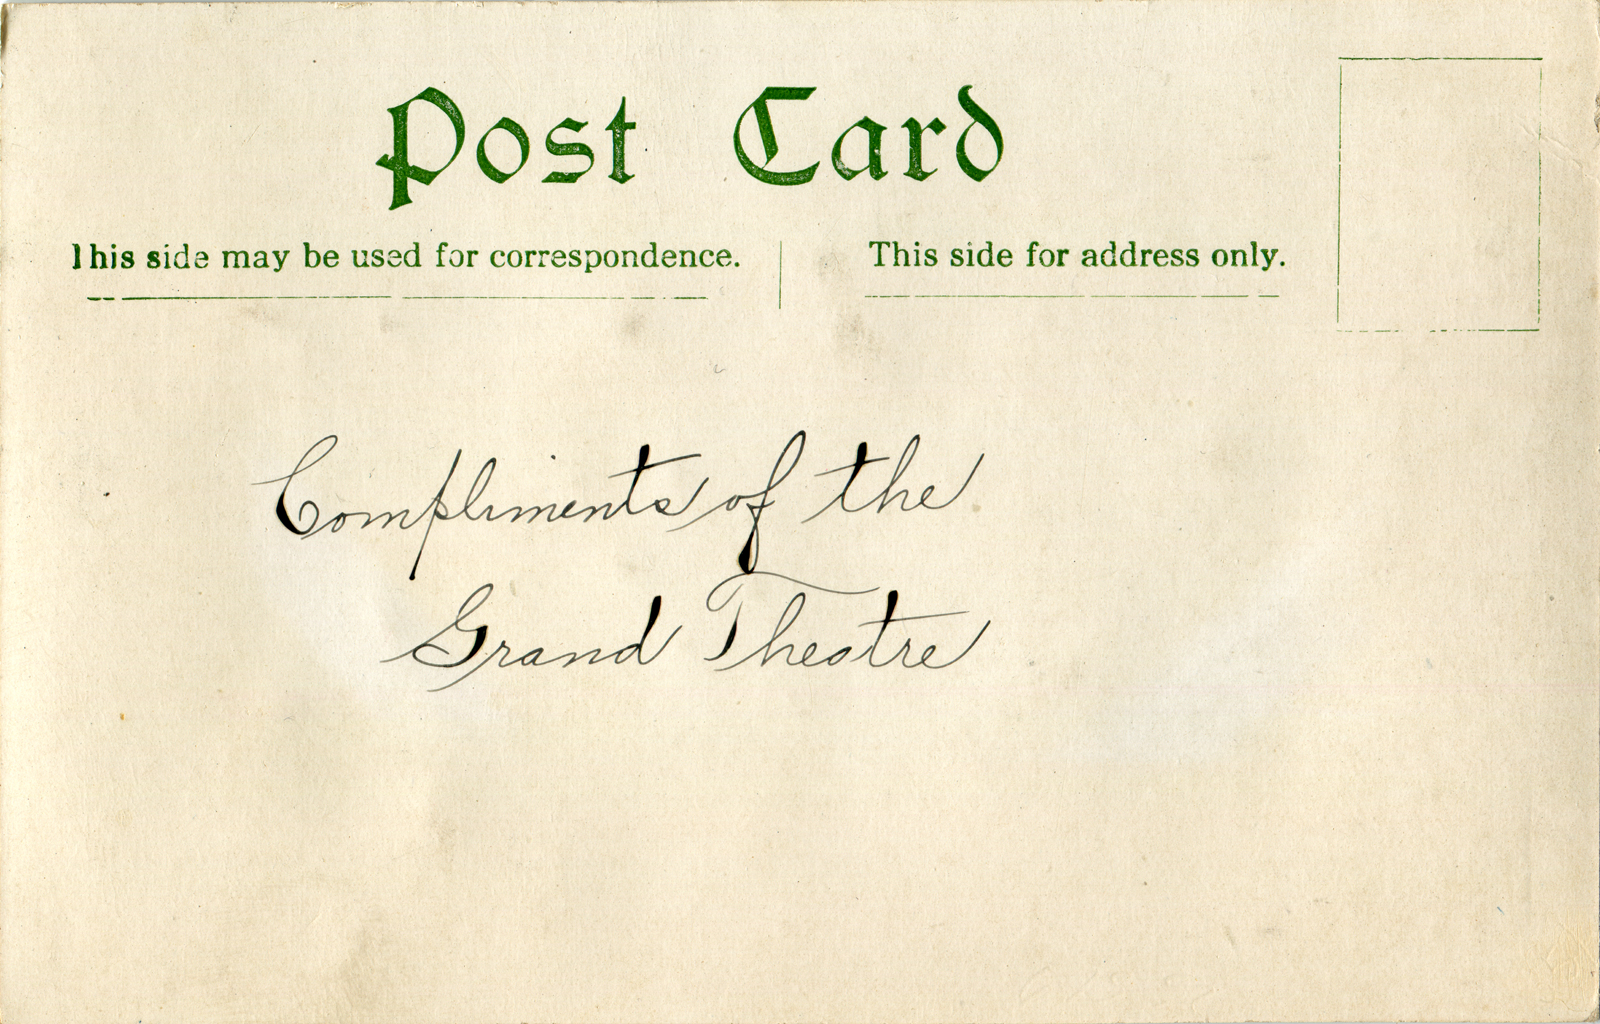 Post Card
This side may be used for correspondence.
This side for address only.
Compliments of the
Grand Theatre